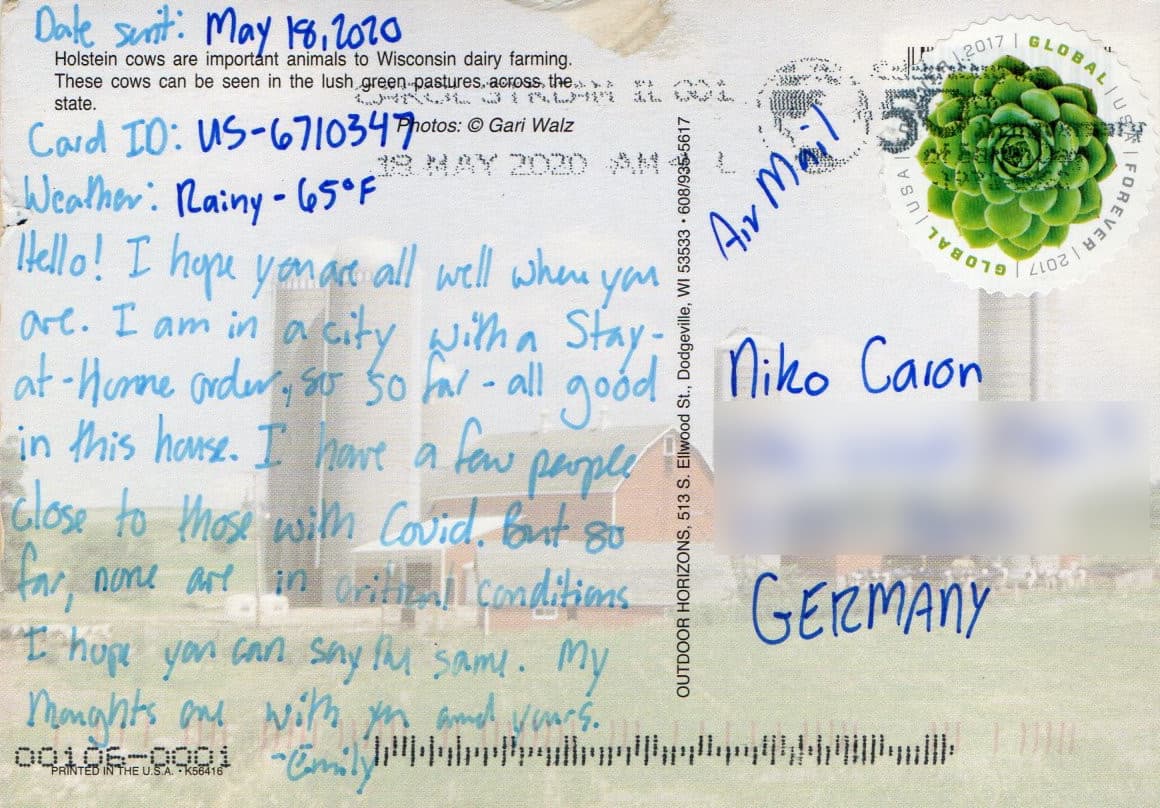 Date sent: May 18, 2020
Holstein cows are important animals to Wisconsin dairy farming.
These cows can be seen in the lush green pastures across the
state.
Photos: © Gari Walz
Card ID: US-6710347
Weather: Rainy - 65°F
Hello! I hope you are all well where you
are. I am in a city with a Stay-
at-Home order, so so far - all good
in this house. I have a few people
close to those with Covid. But so
far, none are in critical conditions
I hope you can say the same. My
thoughts are with you and yours.
-Emily
00106-0001
PRINTED IN THE U.S.A. • K56416
OUTDOOR HORIZONS, 513 S. Ellwood St., Dodgeville, WI 53533 • 608/935-5617
CAROL STREAM IL 601
19 MAY 2020 AM 4 L
Air Mail
GLOBAL | USA | FOREVER | 2017 | GLOBAL | USA | 2017
Niko Caron
GERMANY